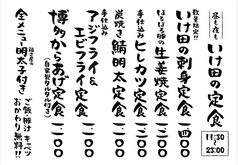 昼も夜も
いけ田の定食
11:30
23:00
数量限定!!
いけ田の刺身定食 一、四〇〇
ほろほろ豚の
生姜焼定食 一、二〇〇
手仕込み
ヒレカツ定食 一、二〇〇
炭焼き鯖明太定食
手仕込み
アジフライ&
エビフライ定食 一、二〇〇
博多からあげ定食 一、一〇〇
(自家製タルタル付き)
全メニュー明太子付き
ご飯・豚汁・キャベツ
おかわり無料!!